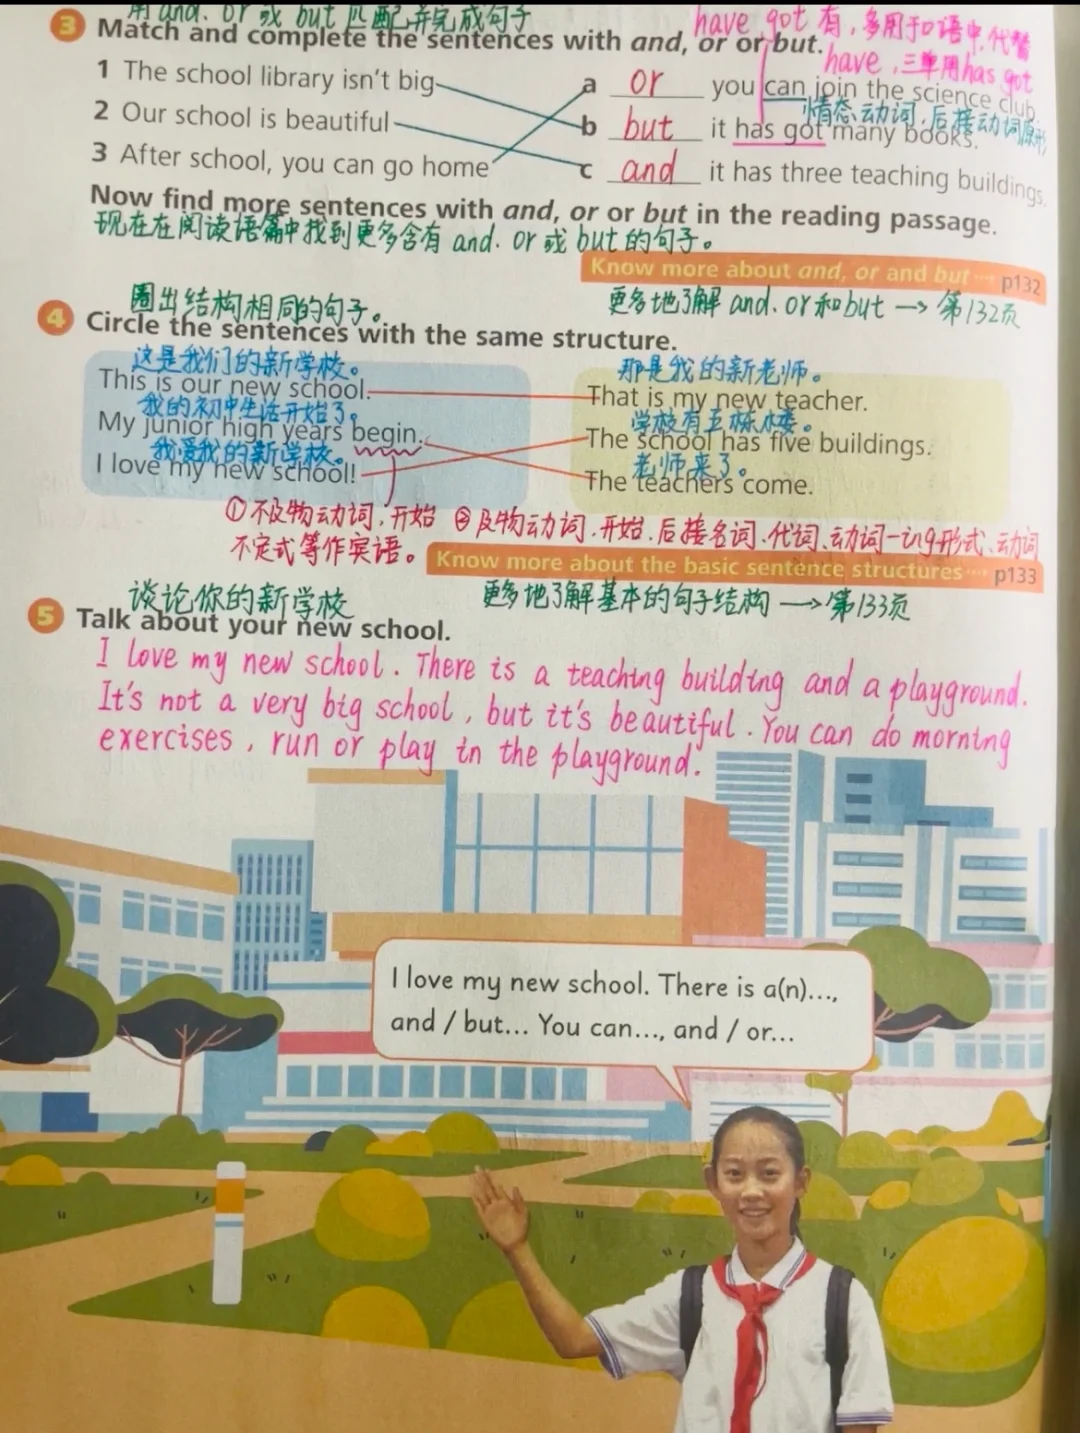 用 and、or 或 but 匹配并完成句子
3 Match and complete the sentences with and, or or but.
have got 有，多用于口语中，代替
have，三单用has got
1 The school library isn't big
a or you can join the science club.
情态动词，后接动词原形
2 Our school is beautiful
b but it has got many books.
3 After school, you can go home
c and it has three teaching buildings.
Now find more sentences with and, or or but in the reading passage.
现在在阅读语篇中找到更多含有 and、or 或 but 的句子。
Know more about and, or and but ··· p132
更多地了解 and、or 和 but → 第132页
圈出结构相同的句子。
4 Circle the sentences with the same structure.
这是我们的新学校。
This is our new school.
我的初中生活开始了。
My junior high years begin.
我爱我的新学校。
I love my new school!
那是我的新老师。
That is my new teacher.
学校有五栋小楼。
The school has five buildings.
老师来了。
The teachers come.
①不及物动词，开始 ②及物动词，开始，后接名词、代词、动词-ing形式、动词
不定式等作宾语。
Know more about the basic sentence structures ··· p133
更多地了解基本的句子结构 → 第133页
谈论你的新学校
5 Talk about your new school.
I love my new school. There is a teaching building and a playground.
It's not a very big school, but it's beautiful. You can do morning
exercises, run or play in the playground.
I love my new school. There is a(n)...,
and / but... You can..., and / or...